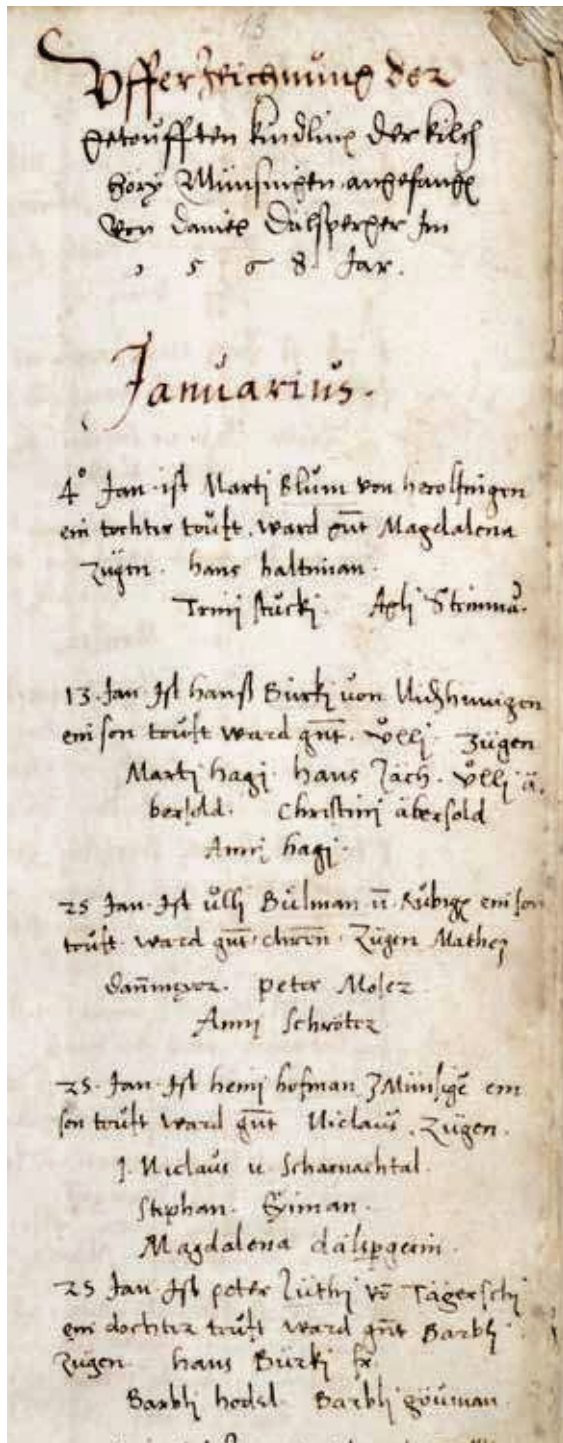 13
Vffer Zeichnung der
getoufften kindling der kilch
hory Münsingen angefangē
von Daniel Dälsperger Im
1 5 6 8 Jar.
Januarius.
4° Jan. ist Marti Blům von herolfingen
ein tochter toůft. ward gnt Magdalena
zügen. hans haltiman.
Trini stucki. Apli Steinmā.
13. Jan. Ist hansl Bürki von Nidhünigen
ein son toůft ward gnt. ůlli. Zügen
Marti hagi. hans Zäch. ůlli ä
bersold. Christini äbersold
Anni hagi.
25 Jan. Ist ůlli Bůlman v̄ Růbigē ein son
toůft. ward gnt chrēn. Zügen Mathez
dan̄meyer. peter Moser
Anni schröter
25. Jan. Ist heini hofman z Münsigē ein
son toůft ward gnt Niclaus. Zügen.
J. Niclaus v. Scharnachtal.
Stephan.
Magdalena dälspgerin.
25 Jan. Ist peter lüthi vō Tägerschi
ein dochter toůft ward gnt Barbli
Zügen hans Bürki
Barbli hodel Barbli göuman